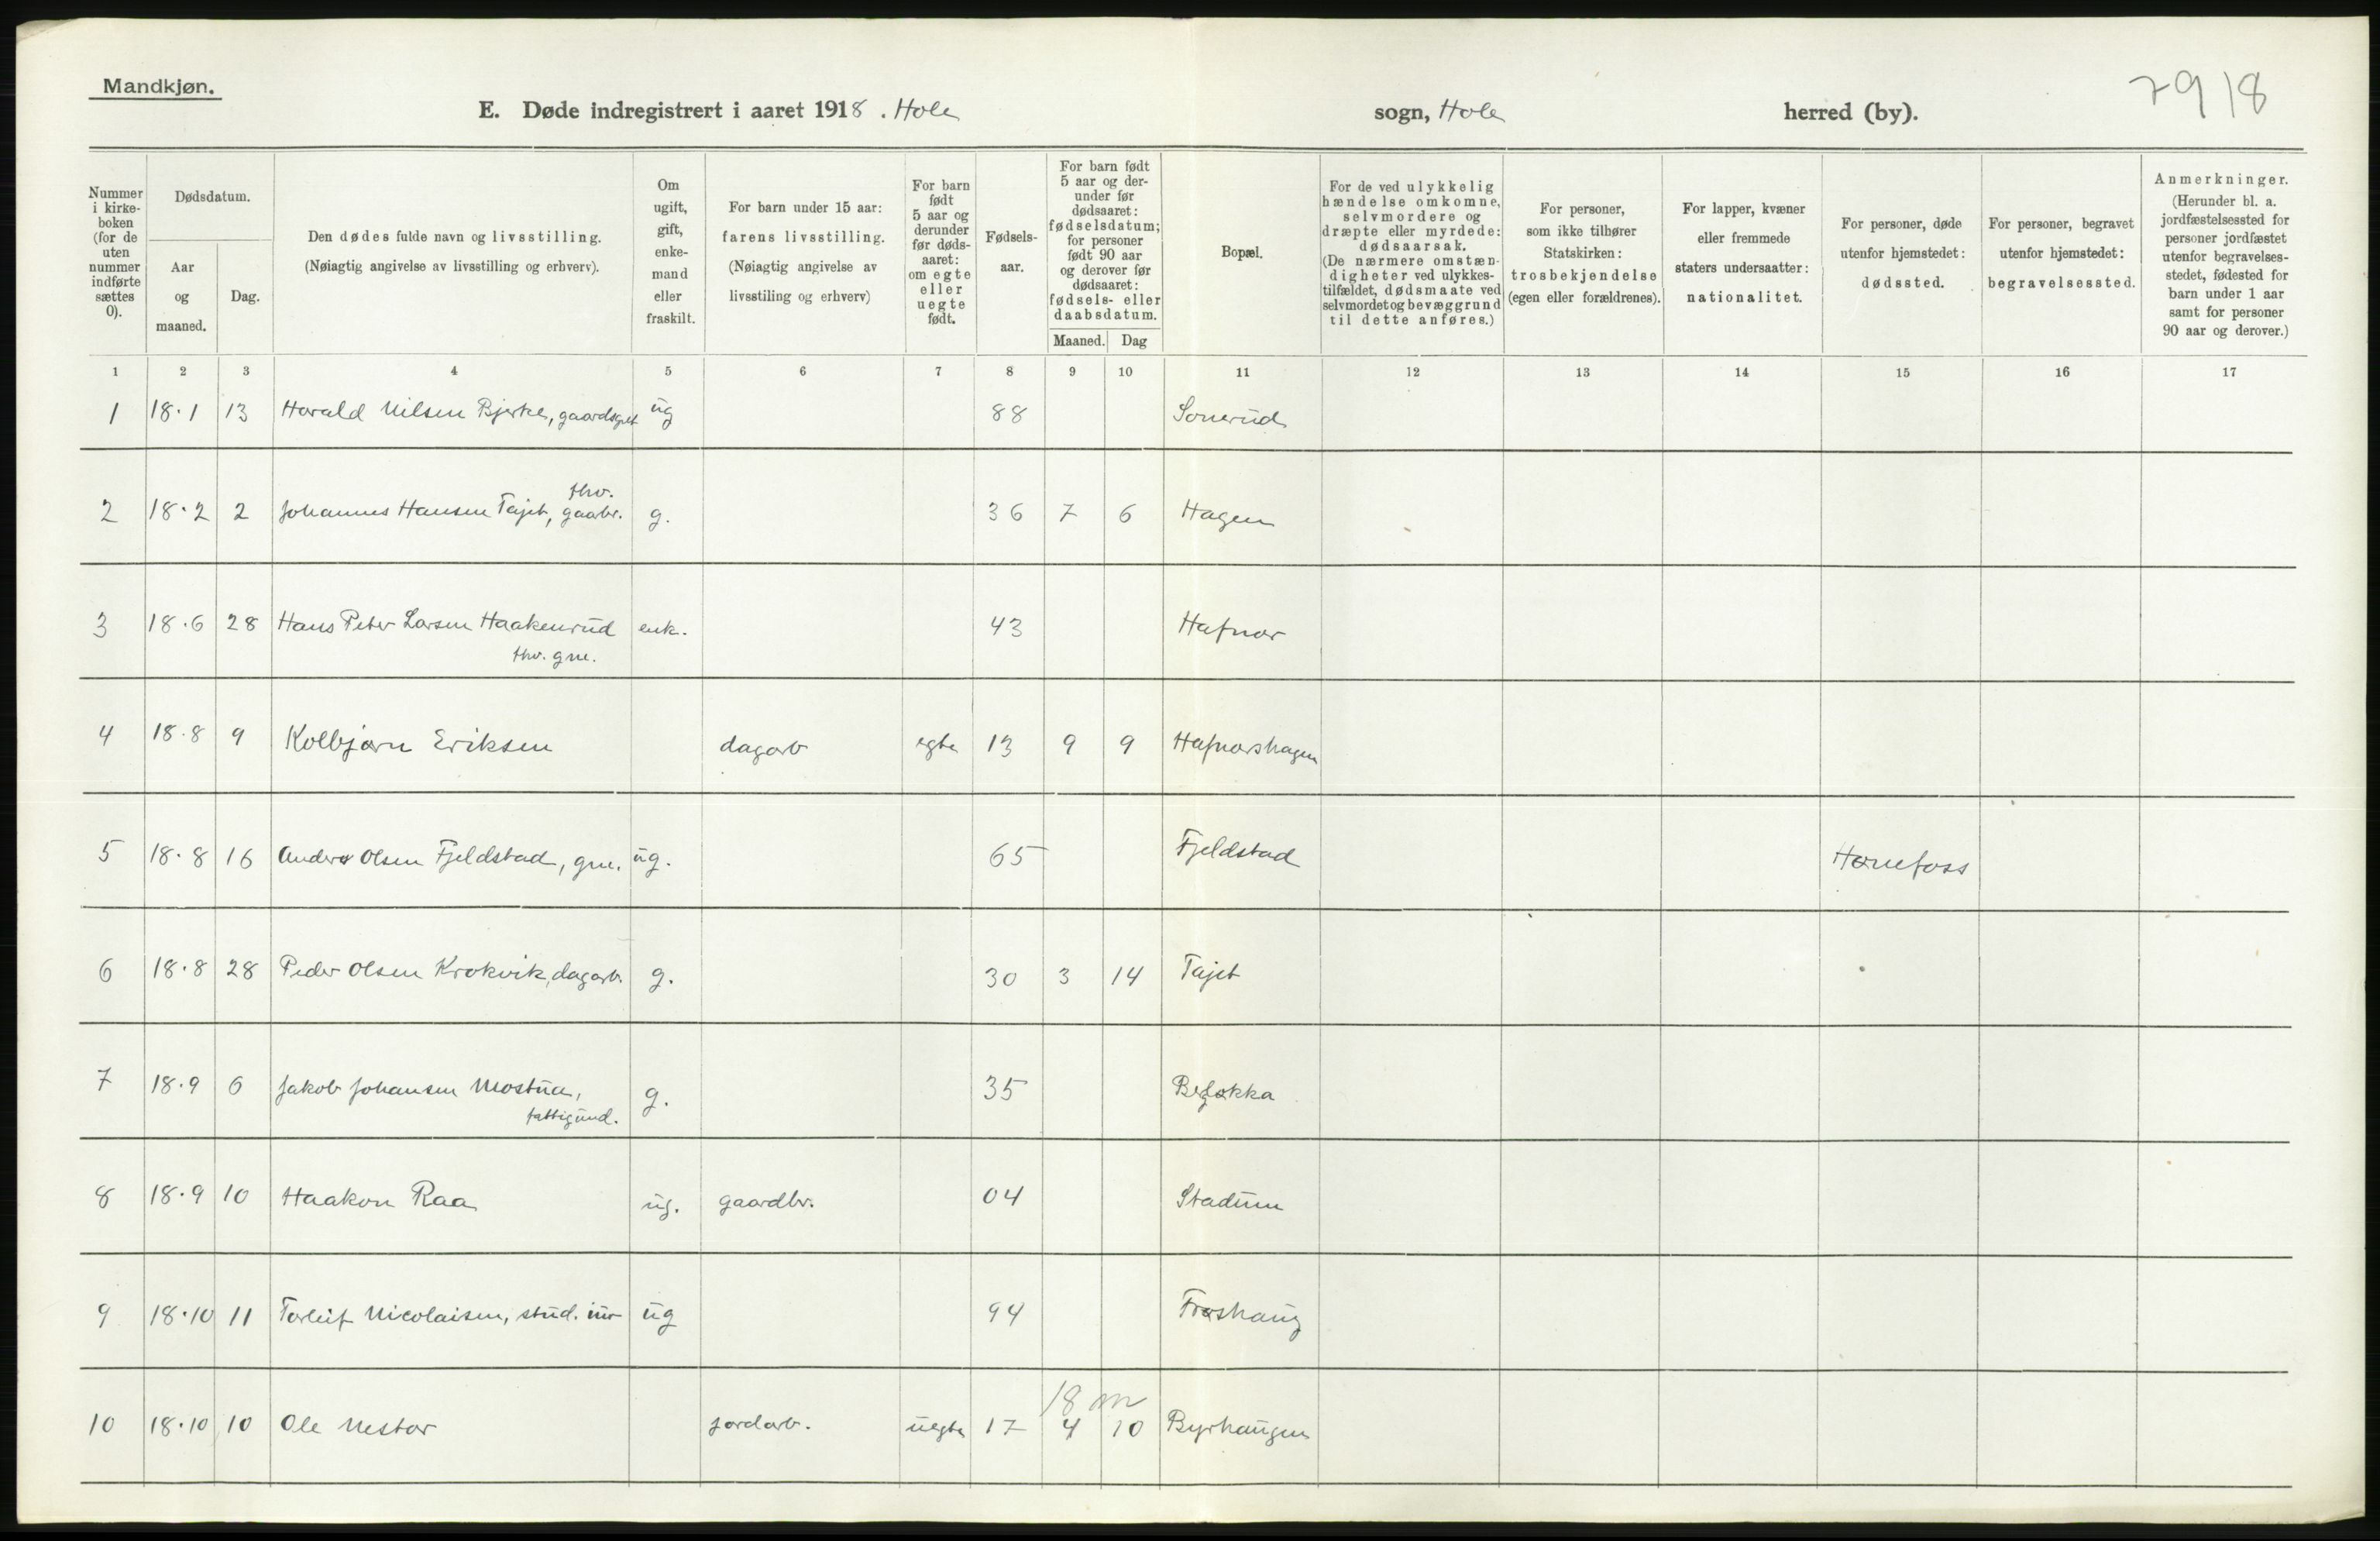 Mandkjøn.
7918
E. Døde indregistrert i aaret 1918. Hole sogn, Hole herred (by).
Nummer i kirke-boken (for de uten nummer indførte sættes 0).
Dødsdatum.
Aar og maaned.
Dag.
Den dødes fulde navn og livsstilling.
(Nøiagtig angivelse av livsstilling og erhverv).
Om ugift, gift, enke-mand eller fraskilt.
For barn under 15 aar: farens livsstilling.
(Nøiagtig angivelse av livsstiling og erhverv)
For barn født 5 aar og derunder før døds-aaret: om egte eller uegte født.
Fødsels-aar.
For barn født 5 aar og der-under før dødsaaret: fødselsdatum; for personer født 90 aar og derover før dødsaaret: fødsels- eller daabsdatum.
Maaned. Dag
Bopæl.
For de ved ulykkelig hændelse omkomne, selvmordere og dræpte eller myrdede: dødsaarsak.
(De nærmere omstæn-digheter ved ulykkes-tilfældet, dødsmaate ved selvmordet og bevæggrund til dette anføres.)
For personer, som ikke tilhører Statskirken: trosbekjendelse (egen eller forældrenes).
For lapper, kvæner eller fremmede staters undersaatter: nationalitet.
For personer, døde utenfor hjemstedet: dødssted.
For personer, begravet utenfor hjemstedet: begravelsessted.
Anmerkninger.
(Herunder bl. a. jordfæstelsessted for personer jordfæstet utenfor begravelses-stedet, fødested for barn under 1 aar samt for personer 90 aar og derover.)
1 2 3 4 5 6 7 8 9 10 11 12 13 14 15 16 17
1 18.1 13 Harald Nilsen Bjerke, ug 88 Sonerud
2 18.2 2 Johannes Hansen Tajet, fhv. gaarbr. g. 36 7 6 Hagen
3 18.6 28 Hans Peter Larsen Haakenrud enk. 43 Hafnor
fhv. gne.
4 18.8 9 Kolbjørn Eriksen dagarb egte 13 9 9 Hafnorshagen
5 18.8 16 Anders Olsen Fjeldstad, gne. ug. 65 Fjeldstad Hønefoss
6 18.8 28 Peder Olsen Krokvik, dagarb. g. 30 3 14 Tajet
7 18.9 6 Jakob Johansen Mostua, g. 35
fattigund.
8 18.9 10 Haakon Raa ug. gaardbr. 04 Stadum
9 18.10 11 Torleif Nicolaisen, stud. ug 94 Frøshaug
18 m
10 18.10 10 Ole Nestor jordarb. uegte 17 4 10 Byrhaugen